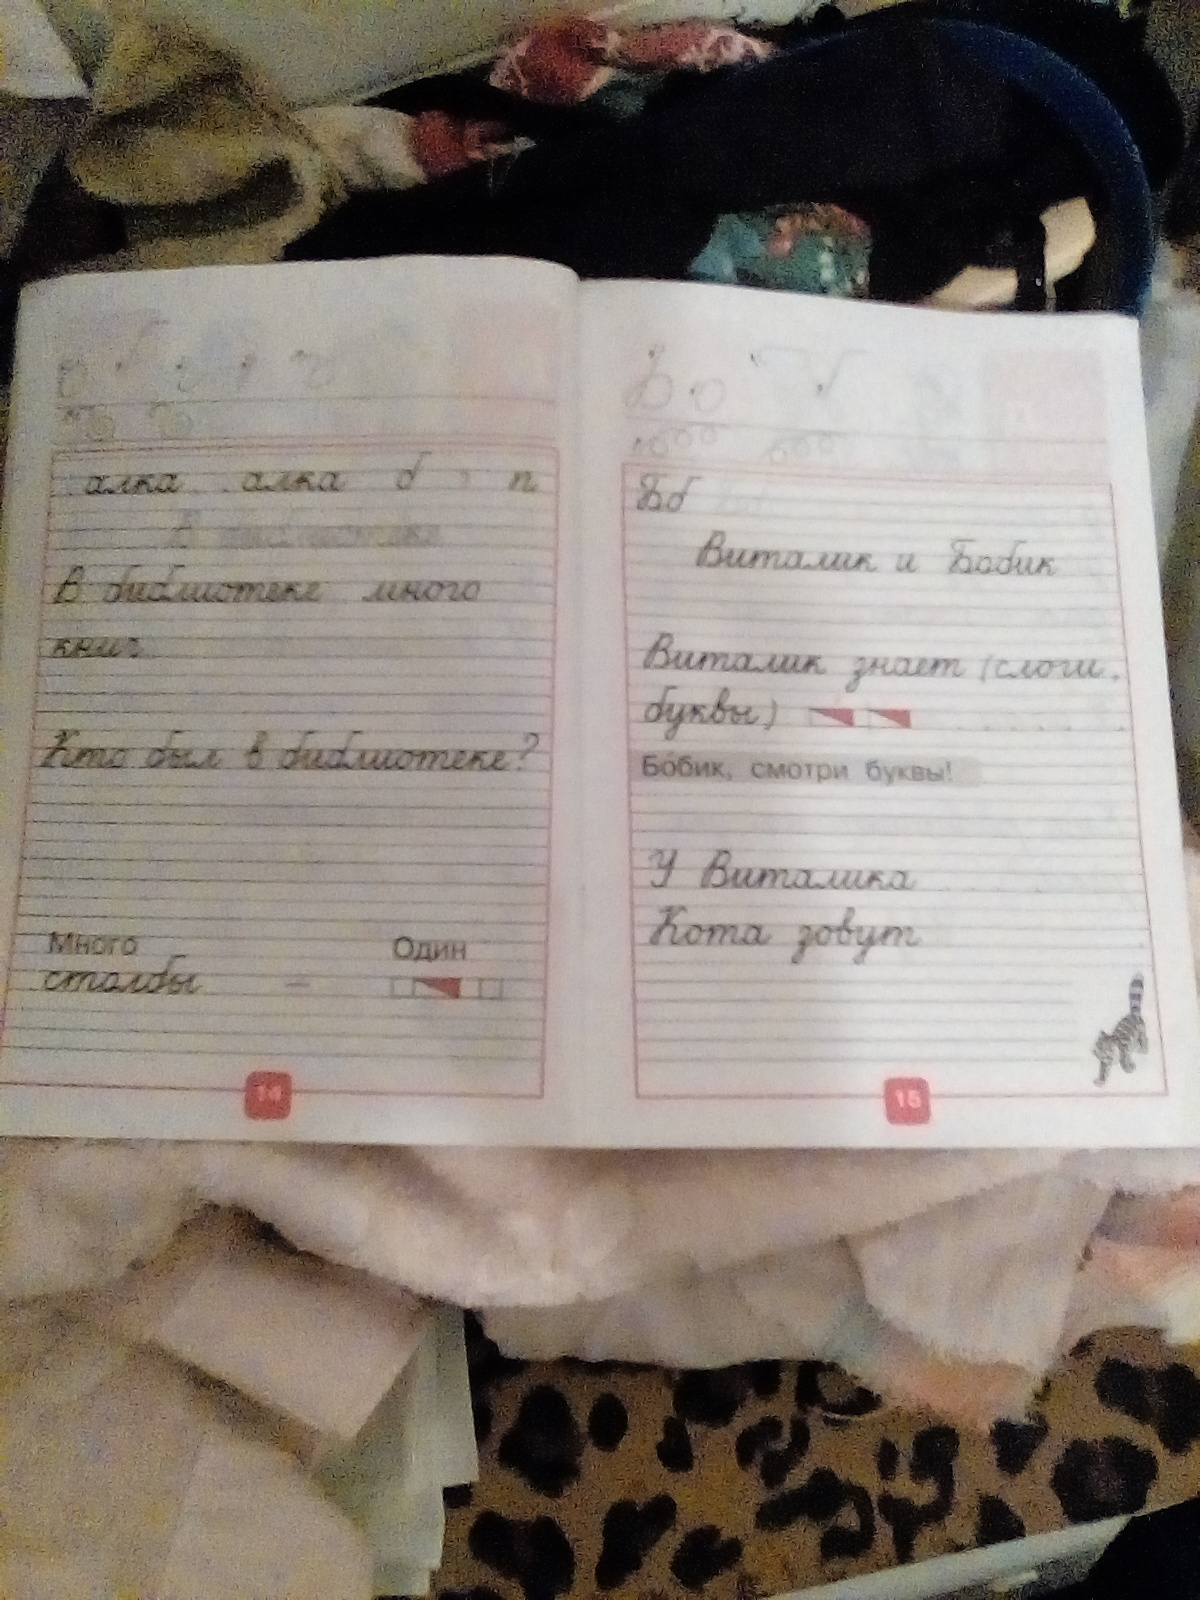 алка алка б п
В библиотеке
В библиотеке много
книг
Кто был в библиотеке?
Много Один
столбы –
14
Бб
Виталик и Бобик
Виталик знает (слоги,
буквы)
Бобик, смотри буквы!
У Виталика
Кота зовут
15